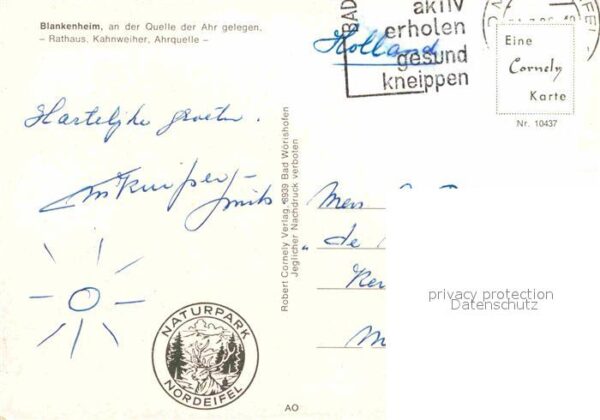 Blankenheim, an der Quelle der Ahr gelegen,
– Rathaus, Kahnweiher, Ahrquelle –
BAD
aktiv
erholen
gesund
kneippen
Holland
Eine
Cornely
Karte
Nr. 10437
Hartelijke groeten.
Robert Cornely Verlag, 8939 Bad Wörishofen
Jeglicher Nachdruck verboten
„de
privacy protection
Datenschutz
NATURPARK
NORDEIFEL
AO